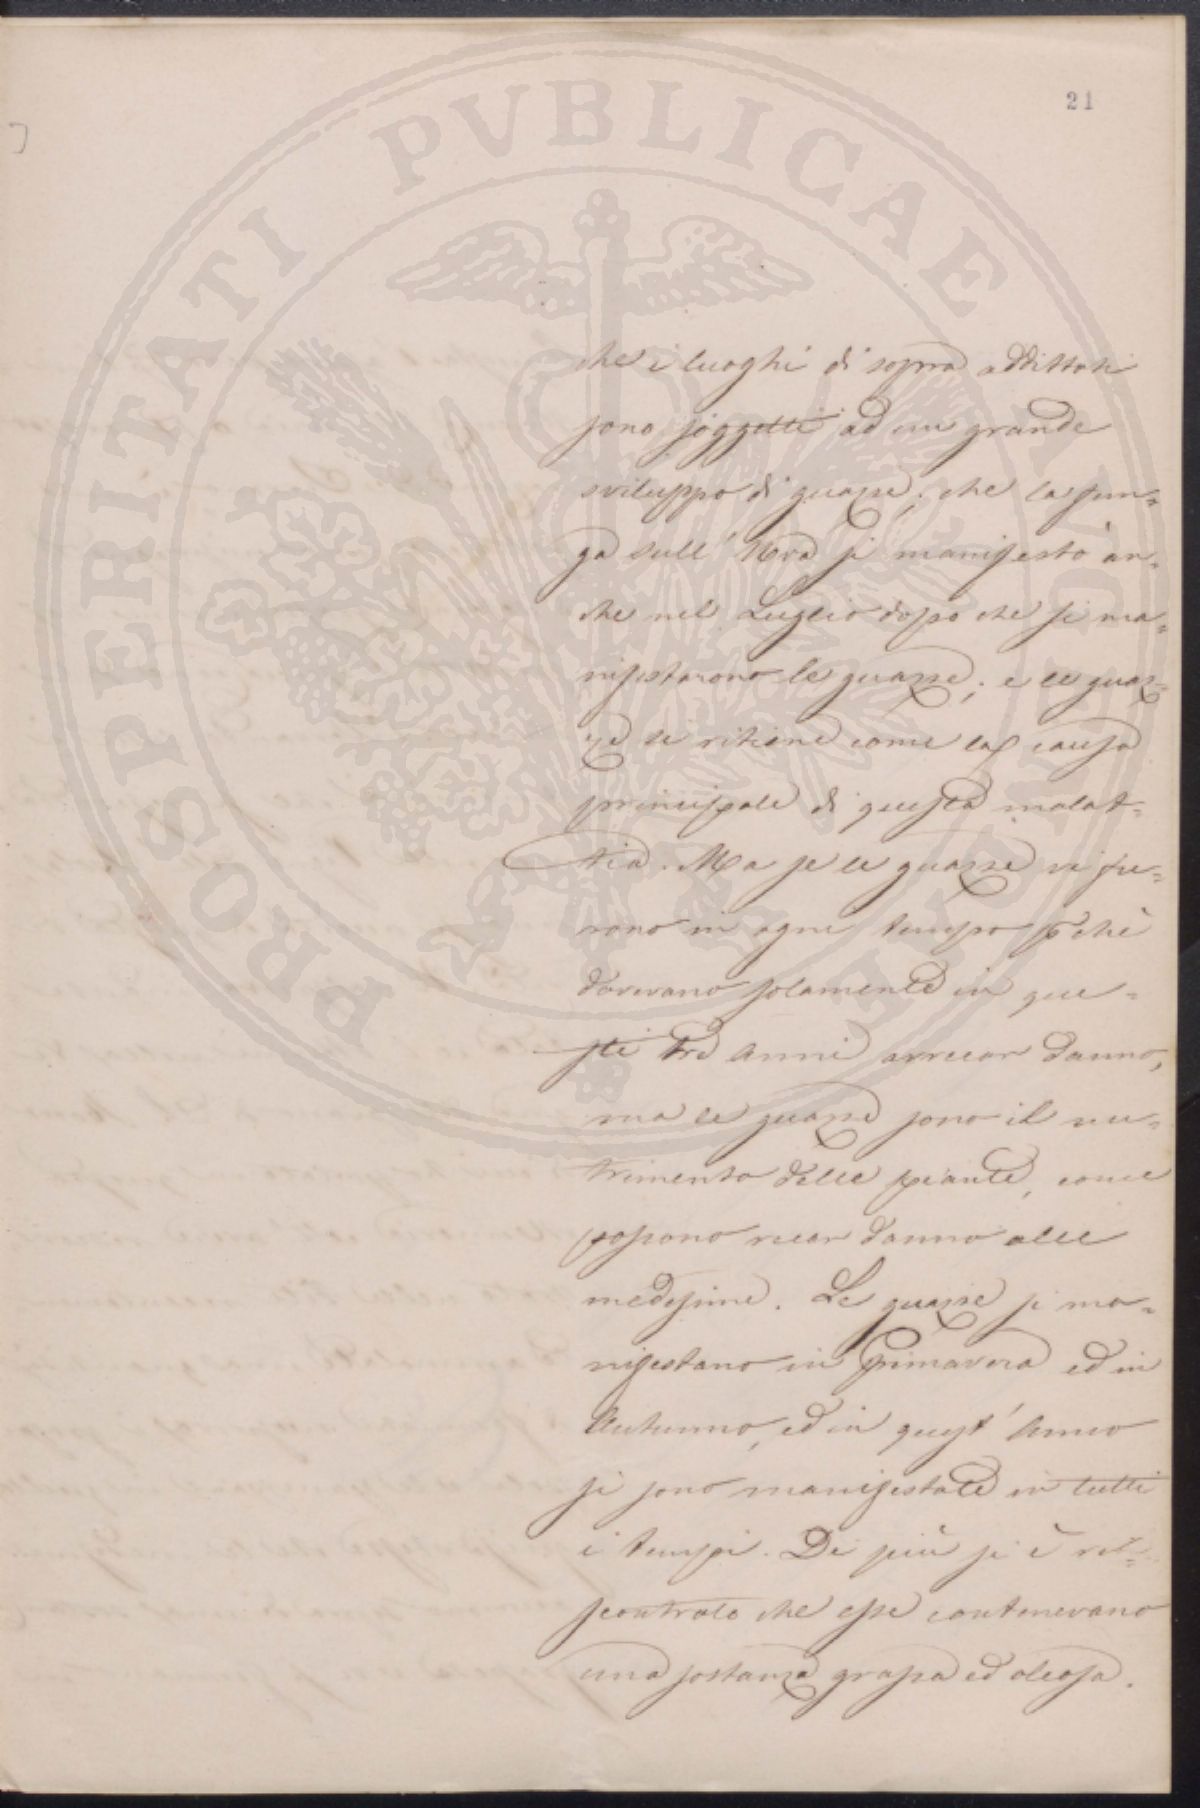 21
PROSPERITATI PUBLICAE AUGENDAE
che i luoghi di sopra addittati
sono soggetti ad un grande
sviluppo di guazze; che la fun=
ga sull' Uva si manifestò an=
che nel Luglio dopo che si ma=
nifestarono le guazze; e le guaz=
ze si ritiene come la causa
principale di questa malat=
tia. Ma se le guazze vi fu=
rono in ogni tempo p chè
dovevano solamente in que=
sti tre anni arrecar danno,
ma le guazze sono il nu=
trimento delle piante, come
possono recar danno alle
medesime. Le guazze si ma=
nifestano in Primavera ed in
Autunno, ed in quest' Anno
si sono manifestate in tutti
i tempi. Di più si è ris=
scontrato che esse contenevano
una sostanza grassa ed oleosa.